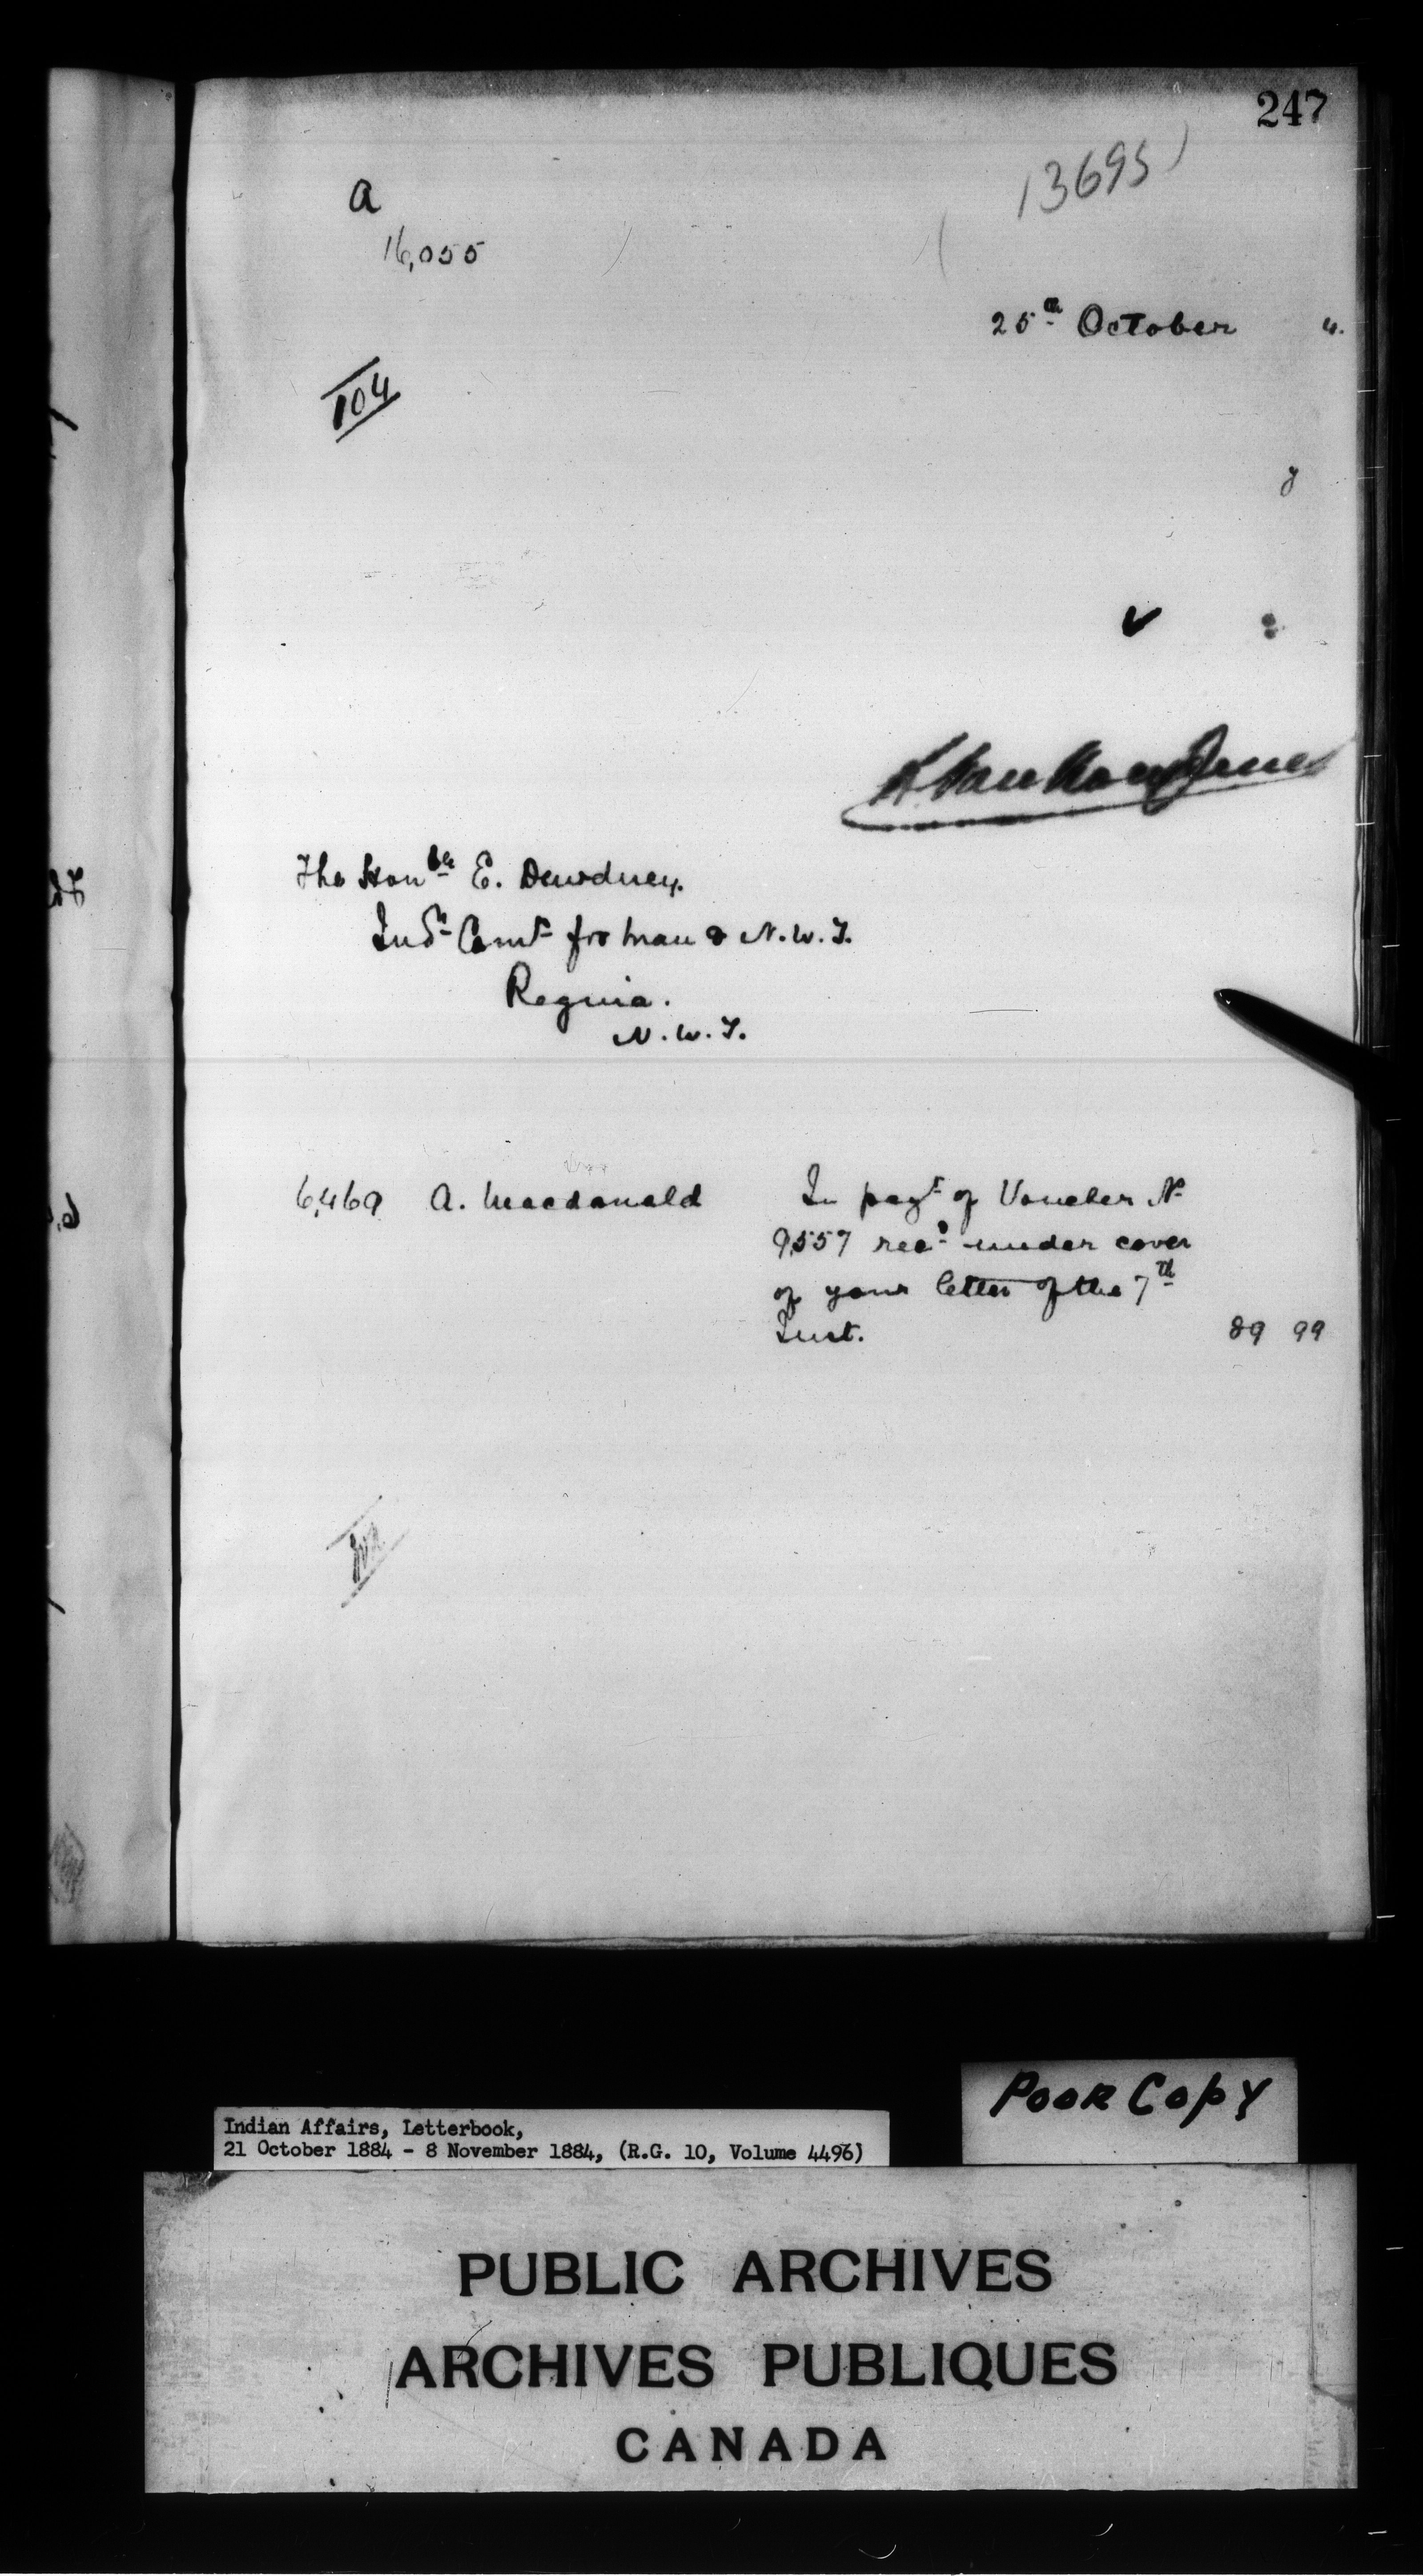 247
13695
a
16,055
25th October 4.
104
The Honble E. Dewdney.
Indn Comr for Man & N.W.T.
Regina.
N.W.T.
6,469 A. Macdonald In payt of Voucher No
9,557 recd under cover
of your letter of the 7th
Inst. 89 99
Poor Copy
Indian Affairs, Letterbook,
21 October 1884 - 8 November 1884, (R.G. 10, Volume 4496)
PUBLIC ARCHIVES
ARCHIVES PUBLIQUES
CANADA